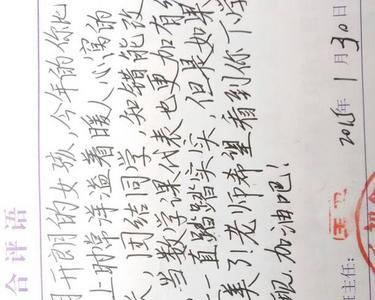 合评语
开朗的女孩，今年的你比
上时常洋溢着暖人心窝的
长，团结同学 知错能改
当数学课代表也更加有
一直踏踏实实 但是如果
美了。老师希望看到你下学
现。加油吧！
主任：
2015年1月30日